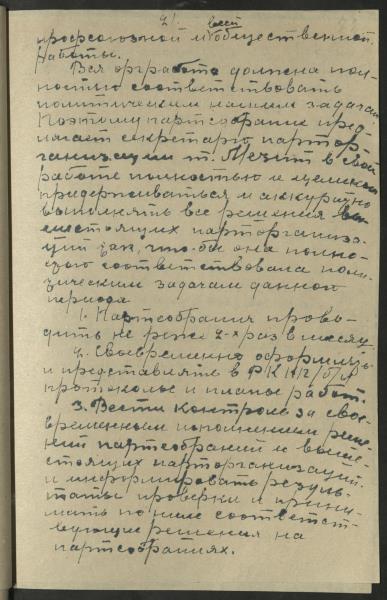 2/.
всей
профсоюзной и общественной
работы.
Вся оргработа должна пол-
ностью соответствовать
политическим нашим задачам
Поэтому партсобрание пред-
лагает секретарю партор-
ганизации т. в свой
работе полностью и целиком
придерживаться и аккуратно
выполнять все решения вы-
шестоящих парторганиза-
ций так, что-бы она полно-
стью соответствовала поли-
тическим задачам данного
периода
1. Партсобрания прово-
дить не реже 2-х раз в месяц
2. Своевременно оформлять
и представлять в РК
протоколы и планы работ.
3. Вести контроль за свое-
временным исполнением реше-
ний партсобраний и выше-
стоящих парторганизаций.
и информировать резуль-
таты проверки и прини-
мать по ним соответст-
вующие решения на
партсобраниях.